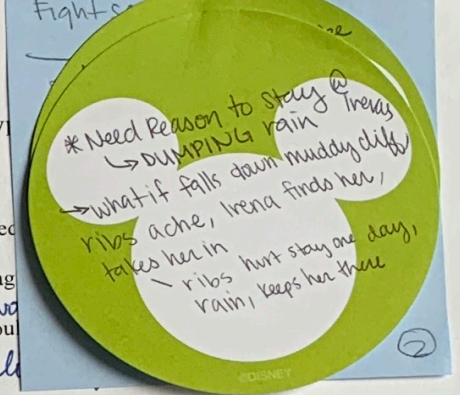 Fight s
* Need Reason to stay @
Irenas
↳ DUMPING rain
→ what if falls down muddy cliff,
ribs ache, Irena finds her,
takes her in
\ ribs hurt stay one day,
rain, keeps her there
2
©DISNEY